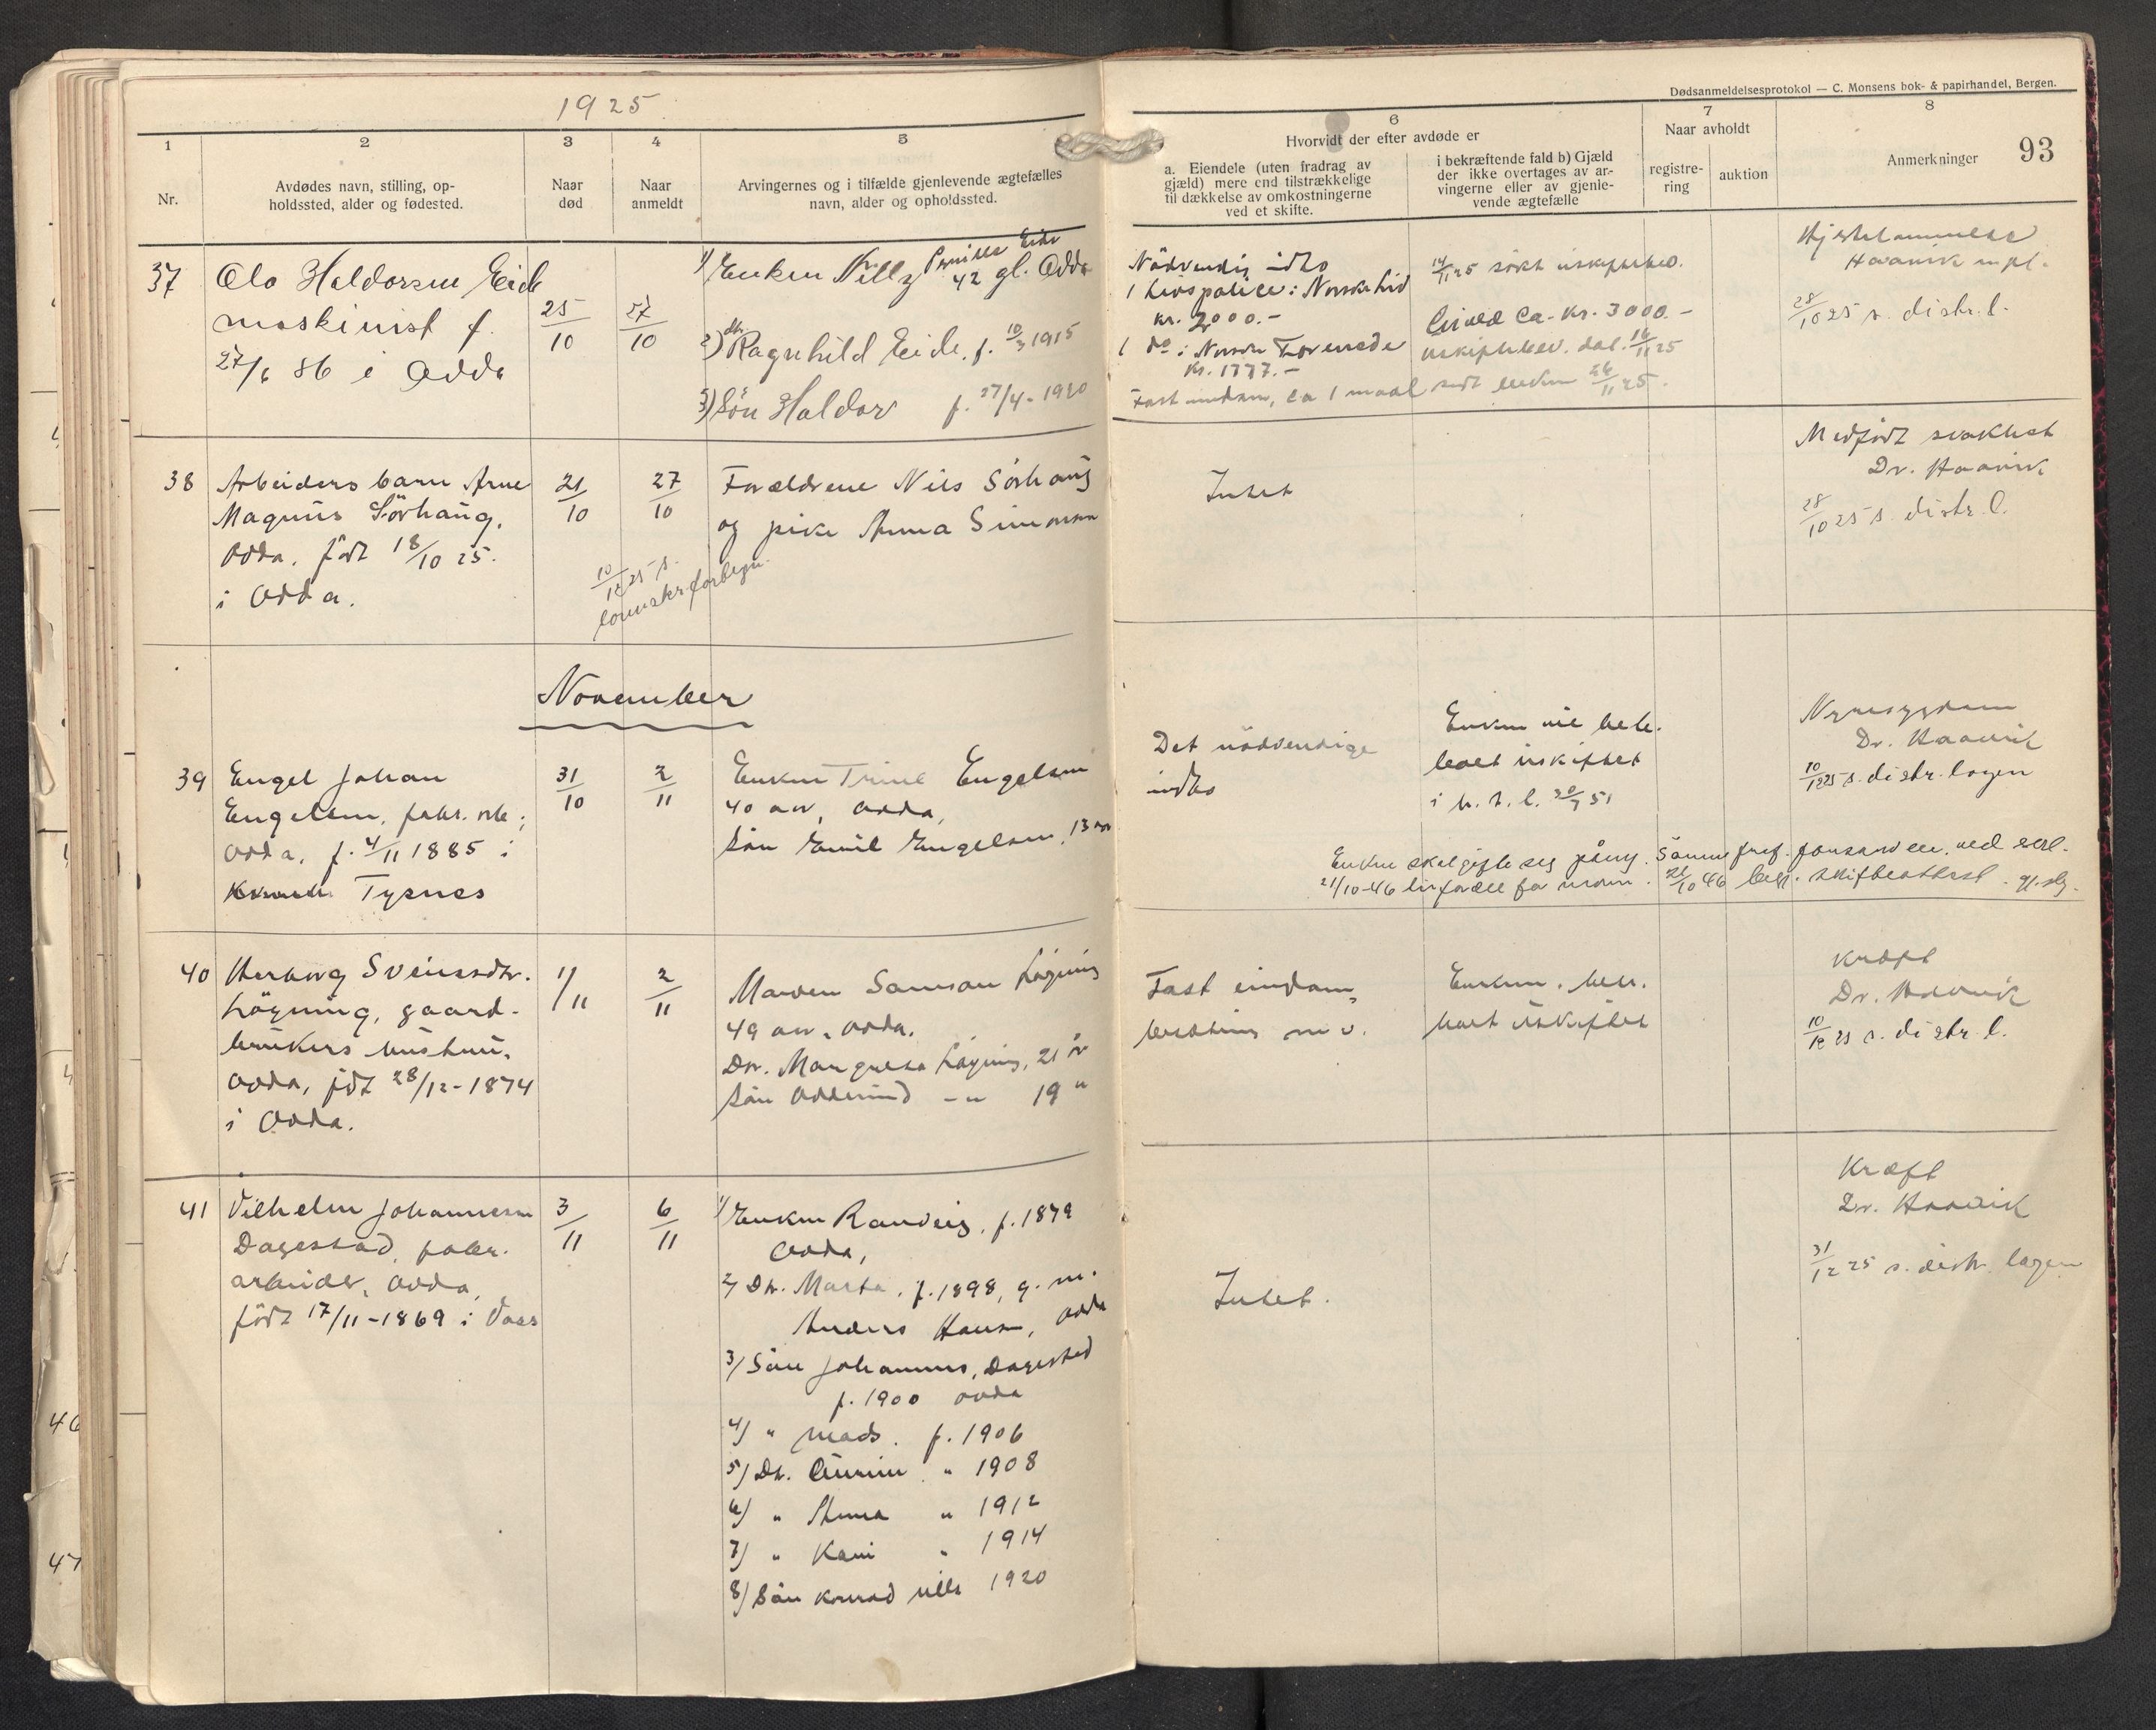 1925
Dødsanmeldelsesprotokol — C. Monsens bok- & papirhandel, Bergen.
93
1
2
3
4
5
6
7
8
Nr.
Avdødes navn, stilling, op-
holdssted, alder og fødested.
Naar
død
Naar
anmeldt
Arvingernes og i tilfælde gjenlevende ægtefælles
navn, alder og opholdssted.
Hvorvidt der efter avdøde er
a. Eiendele (uten fradrag av
gjæld) mere end tilstrækkelige
til dækkelse av omkostningerne
ved et skifte.
i bekræftende fald b) Gjæld
der ikke overtages av ar-
vingerne eller av gjenle-
vende ægtefælle
Naar avholdt
registre-
ring
auktion
Anmerkninger
37
Olo Haldorsen Eide
maskinist f.
27/6 86 i Odda
25/10
27/10
1) Enken Pernille Eide
42 gl. Odda
2) dtr. Ragnhild Eide. f. 10/3 1915
3) Sön Haldor f. 27/4 - 1920
Nödvendig indbo
1 livspolice: Norske Liv
kr. 2000.-
1 do i Norske Forenede
Kr. 1777.-
Fast eiendom, ca 1 maal
14/11 25 sökt uskiftebev.
Gjæld ca. Kr. 3000.-
uskiftebev. dat. 16/11 25
sendt enken 26/11 25.
Hjertelammelse
Haavik
28/10 25 s. distr. l.
38
Arbeiders barn Arne
Magnus Sörhaug,
Odda. födt 18/10 25.
i Odda.
21/10
27/10
10/12 25 s.
lensmskr. forbign.
Forældrene Nils Sörhaug
og pike Anna Simonsen
Intet
Medfödt svakhet
Dr. Haavik
28/10 25 s. distr. l.
November
39
Engel Johan
Engelsen, fabr. arb.,
Odda. f. 4/11 1885 i
Tysnes
31/10
2/11
Enken Trine Engelsen
40 aar, Odda,
Sön Emil Engelsen, 13 aar
Det nödvendige
indbo
Enken vil beh.
boet uskiftet
Nyresygdom
Dr. Haavik
10/12 25 s. distr. logen
Enken skal gifte seg påny.
21/10-46
21/10 46 skifteattest
40
Herborg Sveinsdtr.
Lögning, gaard-
brukers hustru,
Odda, födt 28/12 - 1874
i Odda.
1/11
2/11
Manden Samson Lögning
49 aar, Odda.
Dtr. Margreta Lögning, 21 år
Sön Oddmund -"- 19 "
Fast eiendom,
besætning m. v.
Enkem. beh.
boet uskiftet
Kræft
Dr. Haavik
10/12 25 s. distr. l.
41
Vilhelm Johannesen
Dagestad, fabr.
arbeider, Odda,
födt 17/11 - 1869 i Voss
3/11
6/11
1) Enken Randveig, f. 1879
Odda,
2) Dtr. Marta, f. 1898, g. m.
Anders Hansen, Odda
3) Sön Johannes, Dagestad
f. 1900 Odda
4) " Mads. f. 1906
5) Dtr. " 1908
6) " Anna " 1912
7) " Kari " 1914
8) Sön Konrad 1920
Intet.
Kræft
Dr. Haavik
31/12 25 s. distr. lægen
46
47